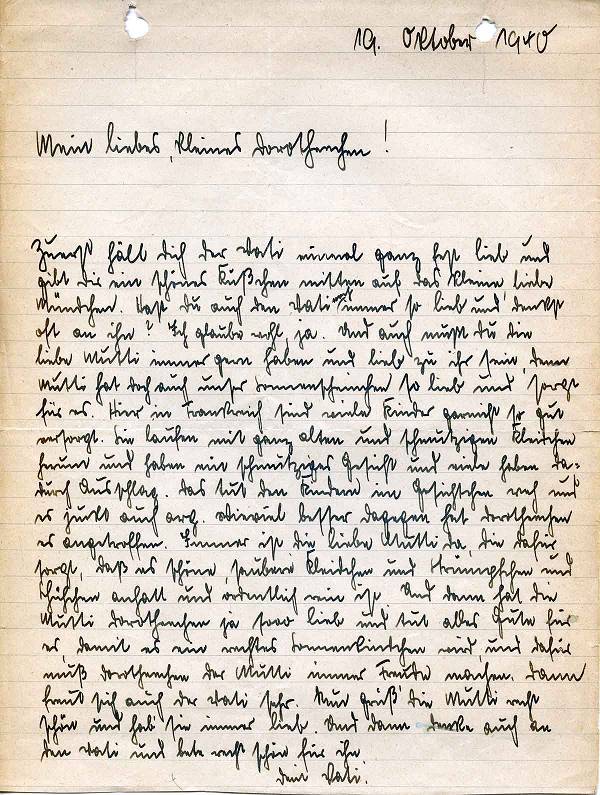 19. Oktober 1940
Mein liebes, kleines Dorothenchen!
Zuerst hält dich der Vati einmal ganz fest lieb und
gibt dir ein schönes Küßchen mitten auf das kleine, liebe
Mündchen. Hast du auch den Vati noch immer so lieb und denkst
oft an ihn? Ich glaube echt, ja. Und auch mußt du die
liebe Mutti immer gern haben und lieb zu ihr sein, denn
Mutti hat doch auch unser Sonnenscheinchen so lieb und sorgt
für es. Hier in Frankreich sind viele Kinder garnicht so gut
versorgt. Sie laufen mit ganz alten und schmutzigen Kleidchen
herum und haben ein schmutziges Gesicht und viele haben da-
durch Ausschlag. Das tut den Kindern im Gesichtchen weh und
es juckt auch arg. Wieviel besser dagegen hat Dorothenchen
es angetroffen. Immer ist die liebe Mutti da, die dafür
sorgt, daß es schöne, saubere Kleidchen und Strümpfchen und
Schühchen anhat und ordentlich rein ist. Und dann hat die
Mutti Dorothenchen ja sooo lieb und tut alles Gute für
es, damit es ein rechtes Sonnenkindchen wird und dafür
muß Dorothenchen der Mutti immer Freude machen. Dann
freut sich auch der Vati sehr. Nun grüß die Mutti recht
schön und hab sie immer lieb. Und dann denke auch an
den Vati und bete recht schön für ihn.
Dein Vati.